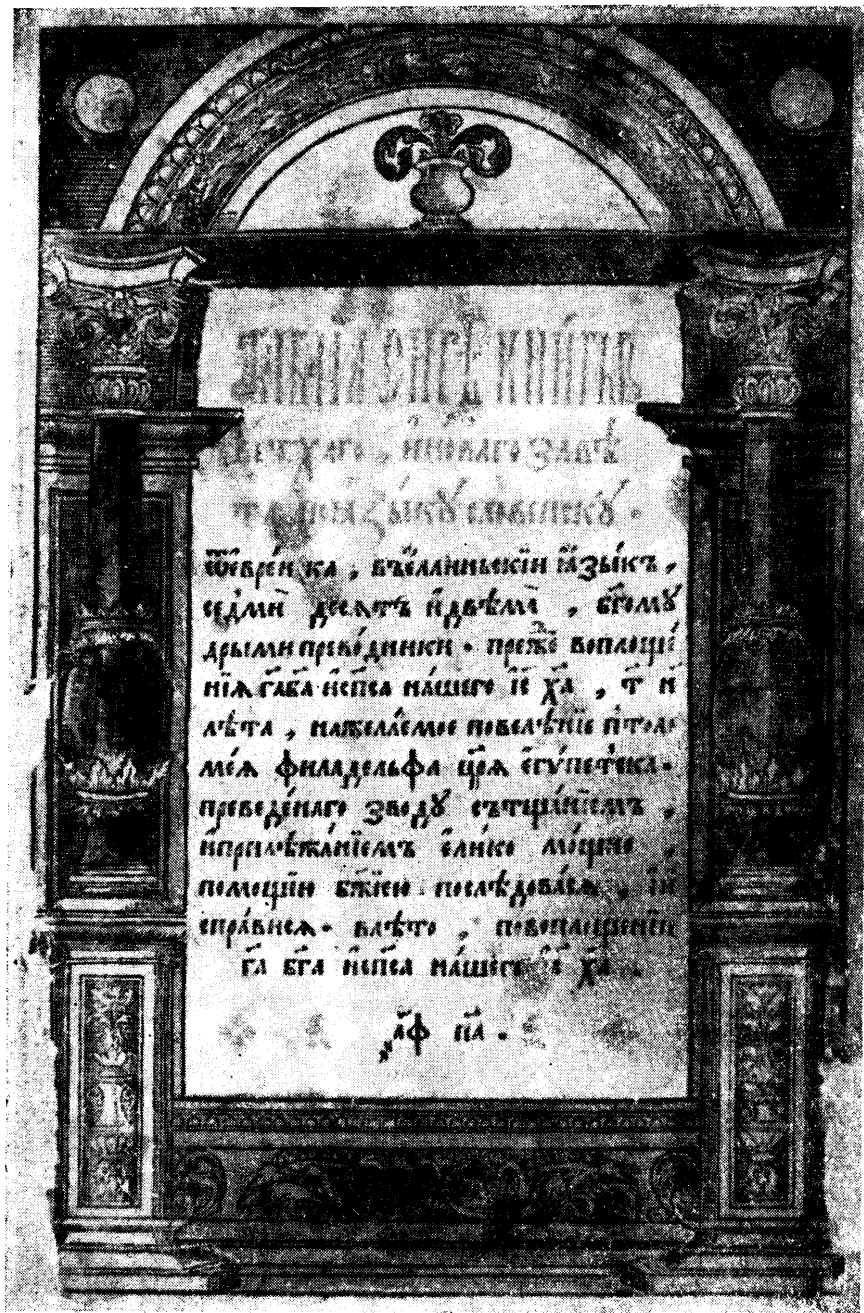 БИБЛІА СИРѢЧЬ КНИГЫ
ВЕТХАГО, И НОВАГО ЗАВѢ
ТА ПО ЯЗЫКУ СЛОВЕНСКУ.
Ѿ еврейска, въ еллиньскіи ꙗзы́къ,
седмиⷨ десятъ и двѣмѧ, бг҃ому
дрыми преводники. преже воплоще́
нїѧ гд҃а бг҃а и сп҃са на́шего іс҃ хр҃а, т҃ и
лѣта, на желаемое повелѣнїе птоло
мѐꙗ филадельфа цр҃ѧ египетска.
преведенаго зводу съ тщанїемъ,
и прилѣжа́нїемъ елико мощно,
помощїю бж҃їею послѣдовасѧ, и и
справисѧ. в лѣто, по воплощенїи
га҃ бг҃а и сп҃са на́шего іс҃ хр҃а.
҂а҃ф па҃.